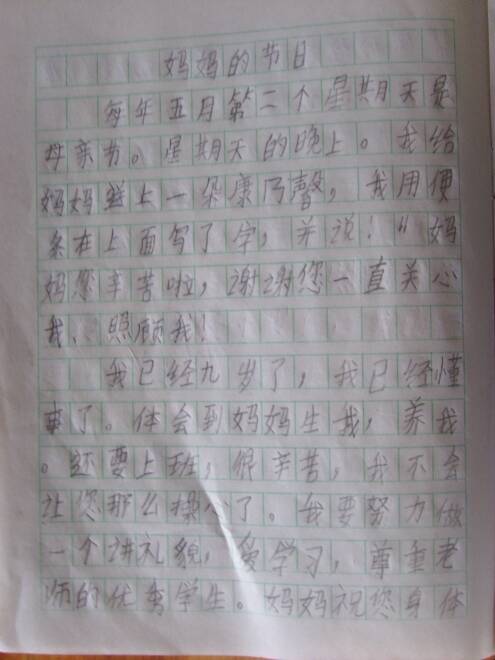 妈妈的节日
每年五月第二个星期天是
母亲节。星期天的晚上。我给
妈妈送上一朵康乃馨，我用便
条在上面写了字，并说！“妈
妈您辛苦啦，谢谢您一直关心
我、照顾我！
我已经九岁了，我已经懂
事了。体会到妈妈生我，养我
。还要上班，很辛苦，我不会
让您那么操心了。我要努力做
一个讲礼貌，爱学习，尊重老
师的优秀学生。妈妈祝您身体